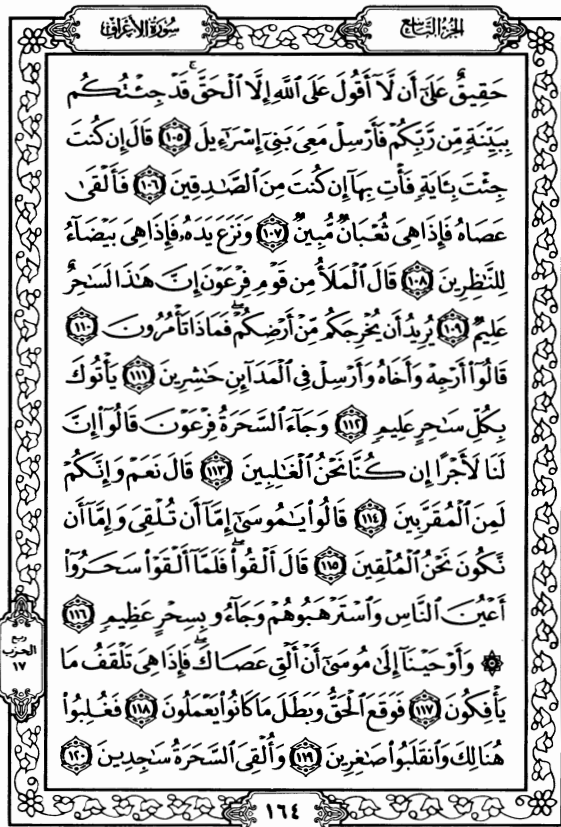 الجزء التاسع
سورة الأعراف
حَقِيقٌ عَلَىٰٓ أَن لَّآ أَقُولَ عَلَى ٱللَّهِ إِلَّا ٱلْحَقَّۚ قَدْ جِئْتُكُم
بِبَيِّنَةٍ مِّن رَّبِّكُمْ فَأَرْسِلْ مَعِىَ بَنِىٓ إِسْرَٰٓءِيلَ ١٠٥ قَالَ إِن كُنتَ
جِئْتَ بِـَٔايَةٍ فَأْتِ بِهَآ إِن كُنتَ مِنَ ٱلصَّـٰدِقِينَ ١٠٦ فَأَلْقَىٰ
عَصَاهُ فَإِذَا هِىَ ثُعْبَانٌ مُّبِينٌ ١٠٧ وَنَزَعَ يَدَهُۥ فَإِذَا هِىَ بَيْضَآءُ
لِلنَّـٰظِرِينَ ١٠٨ قَالَ ٱلْمَلَأُ مِن قَوْمِ فِرْعَوْنَ إِنَّ هَـٰذَا لَسَـٰحِرٌ
عَلِيمٌ ١٠٩ يُرِيدُ أَن يُخْرِجَكُم مِّنْ أَرْضِكُمْۖ فَمَاذَا تَأْمُرُونَ ١١٠
قَالُوٓا۟ أَرْجِهْ وَأَخَاهُ وَأَرْسِلْ فِى ٱلْمَدَآئِنِ حَـٰشِرِينَ ١١١ يَأْتُوكَ
بِكُلِّ سَـٰحِرٍ عَلِيمٍ ١١٢ وَجَآءَ ٱلسَّحَرَةُ فِرْعَوْنَ قَالُوٓا۟ إِنَّ
لَنَا لَأَجْرًا إِن كُنَّا نَحْنُ ٱلْغَـٰلِبِينَ ١١٣ قَالَ نَعَمْ وَإِنَّكُمْ
لَمِنَ ٱلْمُقَرَّبِينَ ١١٤ قَالُوا۟ يَـٰمُوسَىٰٓ إِمَّآ أَن تُلْقِىَ وَإِمَّآ أَن
نَّكُونَ نَحْنُ ٱلْمُلْقِينَ ١١٥ قَالَ أَلْقُوا۟ۖ فَلَمَّآ أَلْقَوْا۟ سَحَرُوٓا۟
أَعْيُنَ ٱلنَّاسِ وَٱسْتَرْهَبُوهُمْ وَجَآءُو بِسِحْرٍ عَظِيمٍ ١١٦
۞ وَأَوْحَيْنَآ إِلَىٰ مُوسَىٰٓ أَنْ أَلْقِ عَصَاكَۖ فَإِذَا هِىَ تَلْقَفُ مَا
يَأْفِكُونَ ١١٧ فَوَقَعَ ٱلْحَقُّ وَبَطَلَ مَا كَانُوا۟ يَعْمَلُونَ ١١٨ فَغُلِبُوا۟
هُنَالِكَ وَٱنقَلَبُوا۟ صَـٰغِرِينَ ١١٩ وَأُلْقِىَ ٱلسَّحَرَةُ سَـٰجِدِينَ ١٢٠
ربع
الحزب
١٧
١٦٤